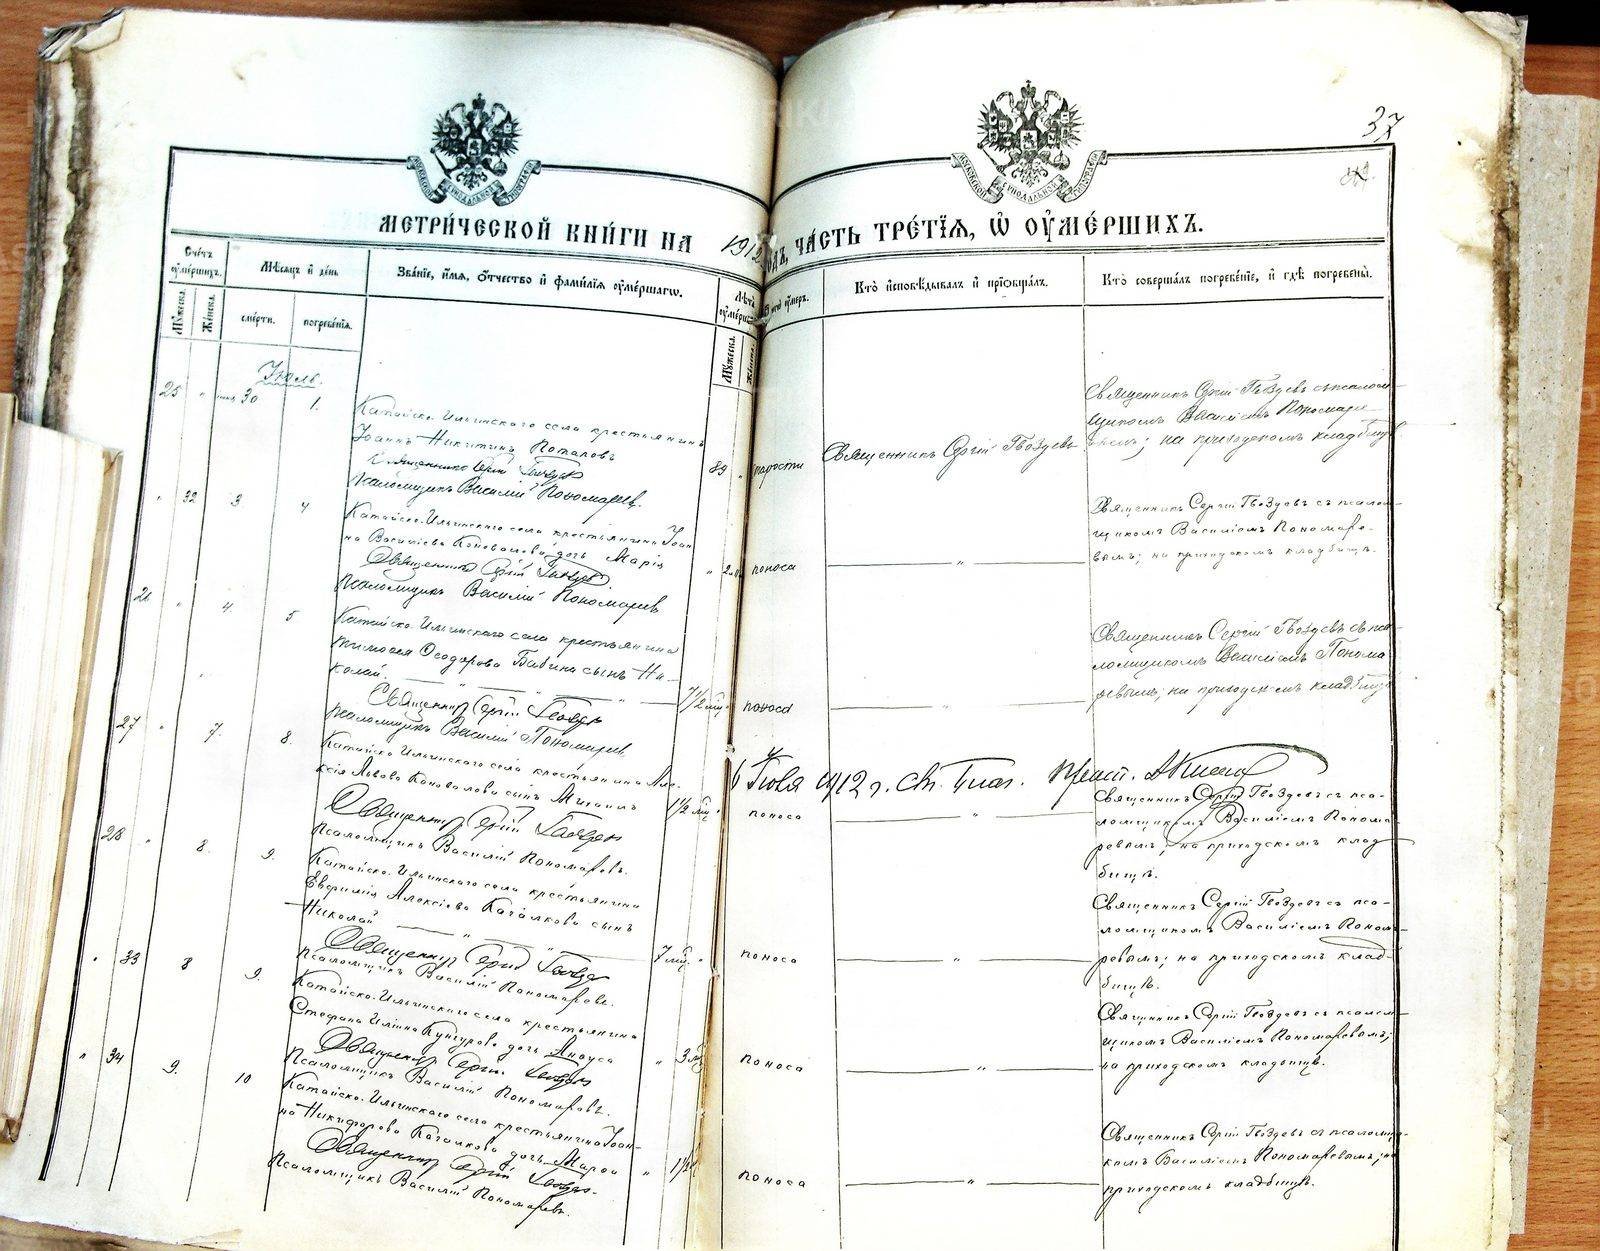 37
МЕТРИ́ЧЕСКОЙ КНИ́ГИ НА 1912 ГОДЪ, ЧА́СТЬ ТРЕ́ТІѦ, Ѡ ОУ҆МЕ́РШИХЪ.
Сче́тъ оу҆ме́ршихъ.
Мѣ́сяцъ и҆ де́нь
Зва́ніе, и҆́мя, ѻ҆́тчество и҆ фами́лія оу҆ме́ршагѡ.
Лѣ́тъ оу҆ме́ршагѡ
Кто̀ и҆сповѣ́дывалъ и҆ пріѡбща́лъ.
Кто̀ соверша́лъ погребе́ніе, и҆ гдѣ̀ погребены̀.
Му́жеска.
Же́нска.
сме́рти.
погребе́нія.
Му́жеска.
Же́нска.
Іюль.
25 " 30 1.
Катайско-Ильинскаго села крестьянинъ
Іоаннъ Никитинъ Потаповъ
Священникъ Сергій Гвоздевъ
Псаломщикъ Василій Пономаревъ.
89 " старости
Священникъ Сергій Гвоздевъ
Священникъ Сергій Гвоздевъ съ псалом-
щикомъ Василіемъ Пономаре-
вымъ; на приходскомъ кладбищѣ.
" 32 3 4
Катайско-Ильинскаго села крестьянина Іоан-
на Василіева Коновалова дочь Марія
Священникъ Сергій Гвоздевъ
Псаломщикъ Василій Пономаревъ
" поноса "
Священникъ Сергій Гвоздевъ съ псалом-
щикомъ Василіемъ Пономаре-
вымъ; на приходскомъ кладбищѣ.
26 " 4. 5
Катайско-Ильинскаго села крестьянина
Тимоѳея Ѳеодорова Бабина сынъ Ни-
колай.
Священникъ Сергій Гвоздевъ
Псаломщикъ Василій Пономаревъ
7½ мѣс. поноса "
Священникъ Сергій Гвоздевъ съ пса-
ломщикомъ Василіемъ Понома-
ревымъ; на приходскомъ кладбищѣ
27 " 7. 8.
Катайско-Ильинскаго села крестьянина Але-
ксія Львова Коновалова сынъ Михаилъ
Священникъ Сергій Гвоздевъ
Псаломщикъ Василій Пономаревъ.
6 Іюля 1912 г. Св. Благ.
1½ мѣс. " поноса "
Священникъ Сергій Гвоздевъ съ пса-
ломщикомъ Василіемъ Понома-
ревымъ; на приходскомъ клад-
бищѣ.
28 " 8. 9.
Катайско-Ильинскаго села крестьянина
Евфимія Алексіева Качалкова сынъ
Николай
Священникъ Сергій Гвоздевъ
Псаломщикъ Василій Пономаревъ.
7 мѣс. " поноса "
Священникъ Сергій Гвоздевъ съ пса-
ломщикомъ Василіемъ Понома-
ревымъ; на приходскомъ клад-
бищѣ.
" 33 8 9.
Катайско-Ильинскаго села крестьянина
Стефана Иліина Кунгурова дочь
Священникъ Сергій Гвоздевъ
Псаломщикъ Василій Пономаревъ.
" 3 поноса "
Священникъ Сергій Гвоздевъ съ псалом-
щикомъ Василіемъ Пономаревымъ;
на приходскомъ кладбищѣ.
" 34 9. 10
Катайско-Ильинскаго села крестьянина Іоан-
на Никифорова Качалкова дочь
Священникъ Сергій Гвоздевъ.
Псаломщикъ Василій Пономаревъ.
" поноса "
Священникъ Сергій Гвоздевъ съ псаломщи-
комъ Василіемъ Пономаревымъ; на
приходскомъ кладбищѣ.